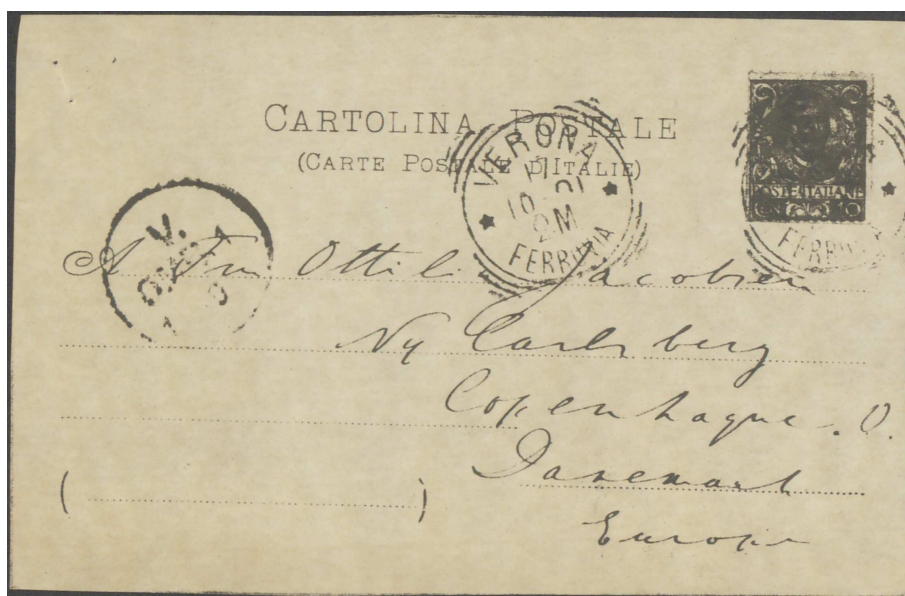 CARTOLINA POSTALE
(CARTE POSTALE D'ITALIE)
VERONA
10 01
2M
FERROVIA
POSTE ITALIANE
CEN 10
FERROVIA
V.
A Fru Ottilia Jacobsen
Ny Carlsberg
Copenhague. V.
Danemark
Europe